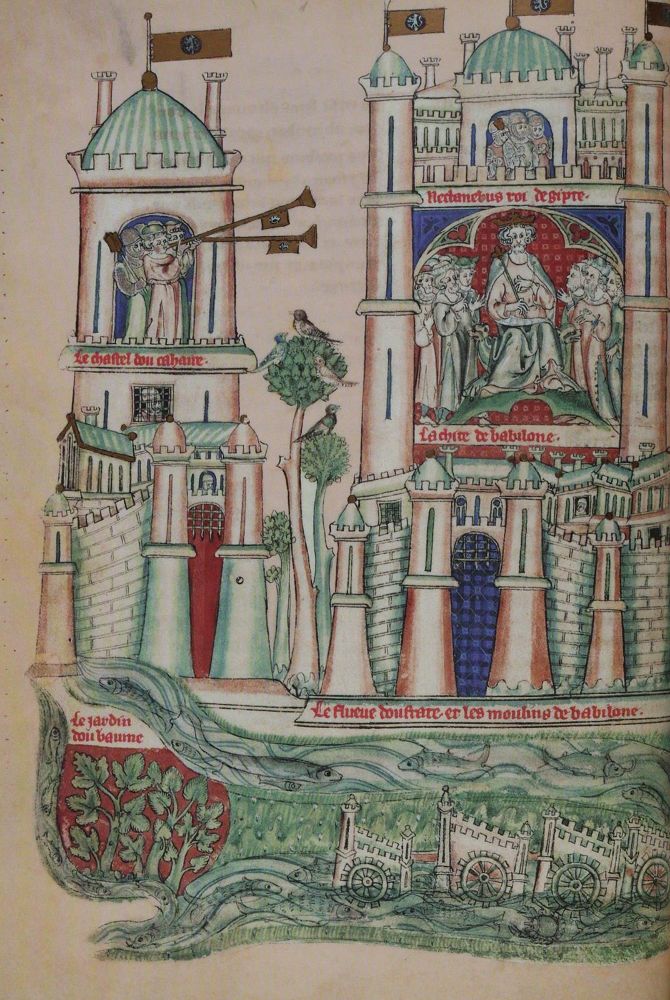 Nectanebus roi degipte.
Le chastel dou cahaire.
La chite de babilone.
Le flueue doufrate. et les moulins de babilone.
Le jardin
dou baume